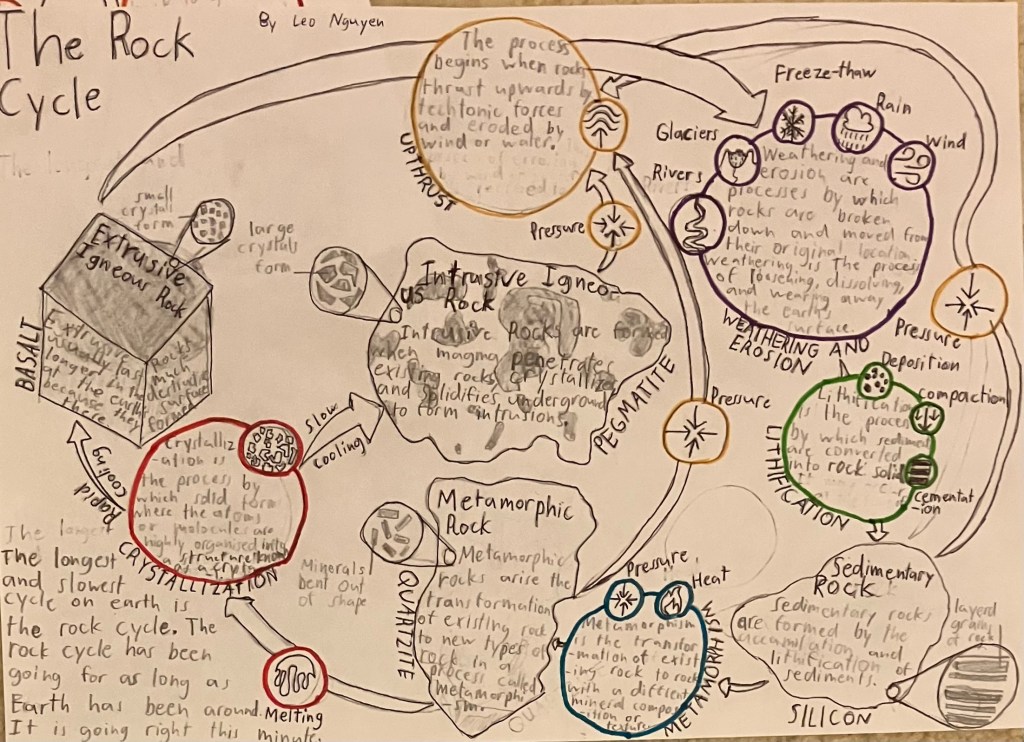 The Rock
Cycle
By Leo Nguyen
The process
begins when rock
thrust upwards by
techtonic forces
and eroded by
wind or water.
UPTHRUST
Pressure
Freeze-thaw
Rain
Wind
Glaciers
Rivers
Weathering and
erosion are
processes by which
rocks are broken
down and moved from
their original location
weathering is the process
of loosening, dissolving,
and wearing away
the earths
surface.
WEATHERING AND
EROSION
Pressure
small
crystall
form
large
crystals
form
Extrusive
Igneous Rock
BASALT
Extrusive Rocks
usually last much
longer in the
at the earth surface
because
there they formed
Intrusive Igneo
us Rock
Intrusive Rocks are formed
when magma penetrates
existing rocks, crystallizes
and solidifies underground
to form intrusions.
PEGMATITE
Pressure
Slow
cooling
Rapid
cooling
crystalliz
-ation is
the process by
which solid form
where the atoms
or molecules are
highly organised into
structure known
as a crystal
CRYSTALLIZATION
Melting
Deposition
compaction
Cementat
-ion
Lithification
is the process
by which sediment
are converted
into rock solid
LITHIFICATION
Metamorphic
Rock
Metamorphic
rocks arise the
transformation
of existing rock
to new types of
rock in a
process called
metamorphi
sm.
QUARTZITE
Minerals
bent out
of shape
Pressure
Heat
Metamorphism
is the transfor
mation of exist
ing rock to rock
with a different
mineral compos
ition or
texture
METAMORPHISM
Sedimentary
ROCK
Sedimentary rocks
are formed by the
accumilation and
lithification of
sediments.
SILICON
layerd
grains
of rock
The longest
The longest
and slowest
cycle on earth is
the rock cycle. The
rock cycle has been
going for as long as
Earth has been around.
It is going right this minute.